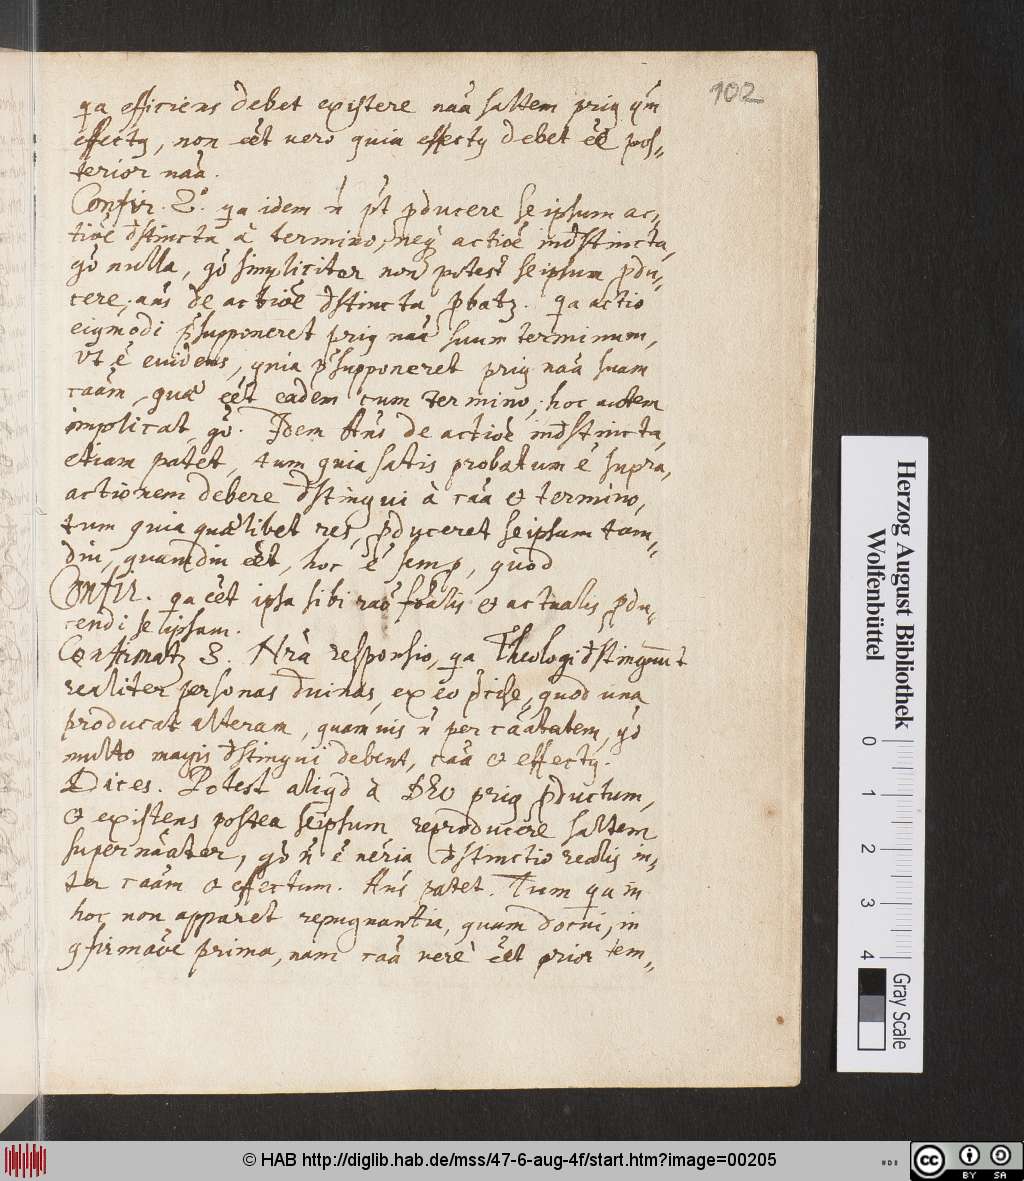 102
qa efficiens debet existere naã saltem prius qm̃
effectus, non eẽt vero quia effectus debet eẽ pos„
terior naã.
Confir. 2º. qa idem ñ põt pducere seipsum ac„
tiõe dstincta à termino, neq actiõe indstincta,
gõ nulla, gõ simpliciter non potest seipsum pdu„
cere; añs de actiõe dstincta pbatz. qa actio
eiusmodi psupponeret prius naã suum terminum,
vt ẽ euidens, quia psupponeret prius naã suam
caãm, quæ eẽt eadem cum termino; hoc autem
implicat, gõ. Idem Añs de actiõe indstincta,
etiam patet, tum quia satis probatum ẽ supra,
actionem debere dstingui à caã & termino,
tum quia quælibet res, pduceret seipsum tam„
diu, quamdiu eẽt, hoc ẽ semp, quod
Confir. qa eẽt ipsa sibi raõ foãlis & actualis pdu„
cendi seipsum.
Confirmatz 3. Nrã responsio, qa Theologi dstinguunt
realiter personas diuinas, ex eo pcise, quod una
producat alteram, quamuis ñ per caãtatem, gõ
multo magis dstingui debent, caã & effectus.
Dices. Potest aliqd à DEO prius pductum,
& existens postea seipsum reproducere saltem
supernãater, gõ ñ ẽ neria dstinctio realis in„
ter caãm & effectum. Añs patet. Tum qa in
hoc non apparet repugnantia, quam docui, in
9firmaõe prima, nam caã verè eẽt prior tem„
Herzog August Bibliothek
Wolfenbüttel
0 1 2 3 4
Gray Scale
© HAB http://diglib.hab.de/mss/47-6-aug-4f/start.htm?image=00205
cc BY SA